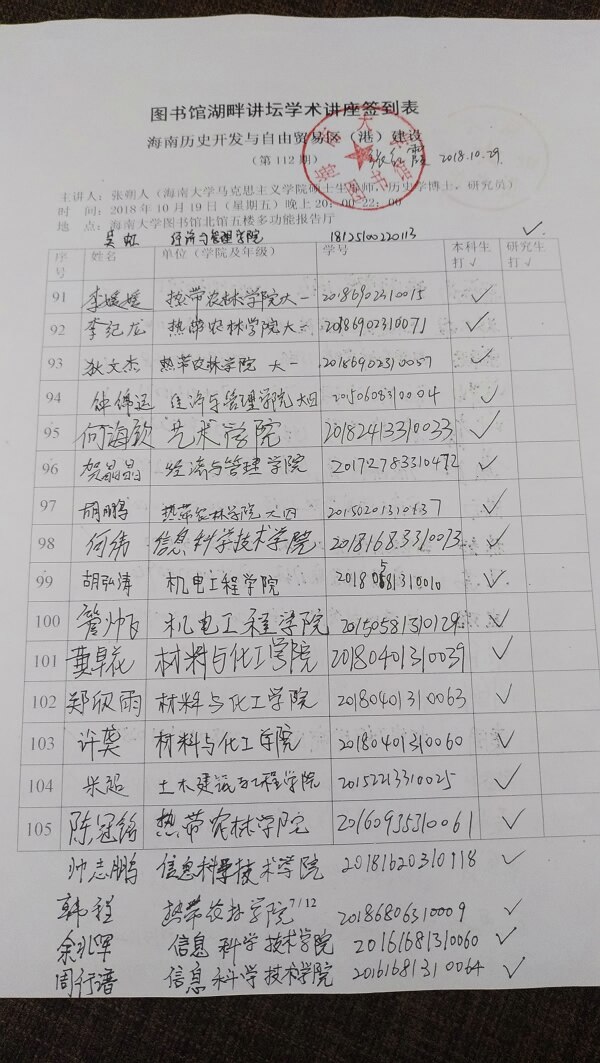 图书馆湖畔讲坛学术讲座签到表
海南历史开发与自由贸易区（港）建设
（第112期） 2018.10.29.
主讲人：张朔人（海南大学马克思主义学院硕士生导师，历史学博士，研究员）
时 间：2018年10月19日（星期五）晚上20：00-22：00
地 点：海南大学图书馆北馆五楼多功能报告厅
吴虹 经济与管理学院 18125100220113 ✓
序号 姓名 单位（学院及年级） 学号 本科生打√ 研究生打√
91 李媛媛 热带农林学院大一 20186902310015 ✓
92 李纪龙 热带农林学院大一 20186902310071 ✓
93 狄文杰 热带农林学院 大一 20186902310057 ✓
94 钟传迅 经济与管理学院大四 20150608310004 ✓
95 何海钦 艺术学院 20182413310033 ✓
96 贺晶晶 经济与管理学院 20172783310472 ✓
97 胡鹏 热带农林学院 大四 20150201310637 ✓
98 何纬 信息科学技术学院 20181683310013 ✓
99 胡弘涛 机电工程学院 ✓
100 机电工程学院 20150581310129 ✓
101 黄卓花 材料与化工学院 20180401310039 ✓
102 郑欣雨 材料与化工学院 20180401310063 ✓
103 许龚 材料与化工学院 20180401310060 ✓
104 米超 土木建筑与工程学院 20152213310025 ✓
105 陈冠铭 热带农林学院 20160935310061 ✓
帅志鹏 信息科学技术学院 20181620310118 ✓
韩程 热带农林学院7/12 20186806310009 ✓
余兆晖 信息科学技术学院 20161681310060 ✓
周行谱 信息科学技术学院 20161681310064 ✓